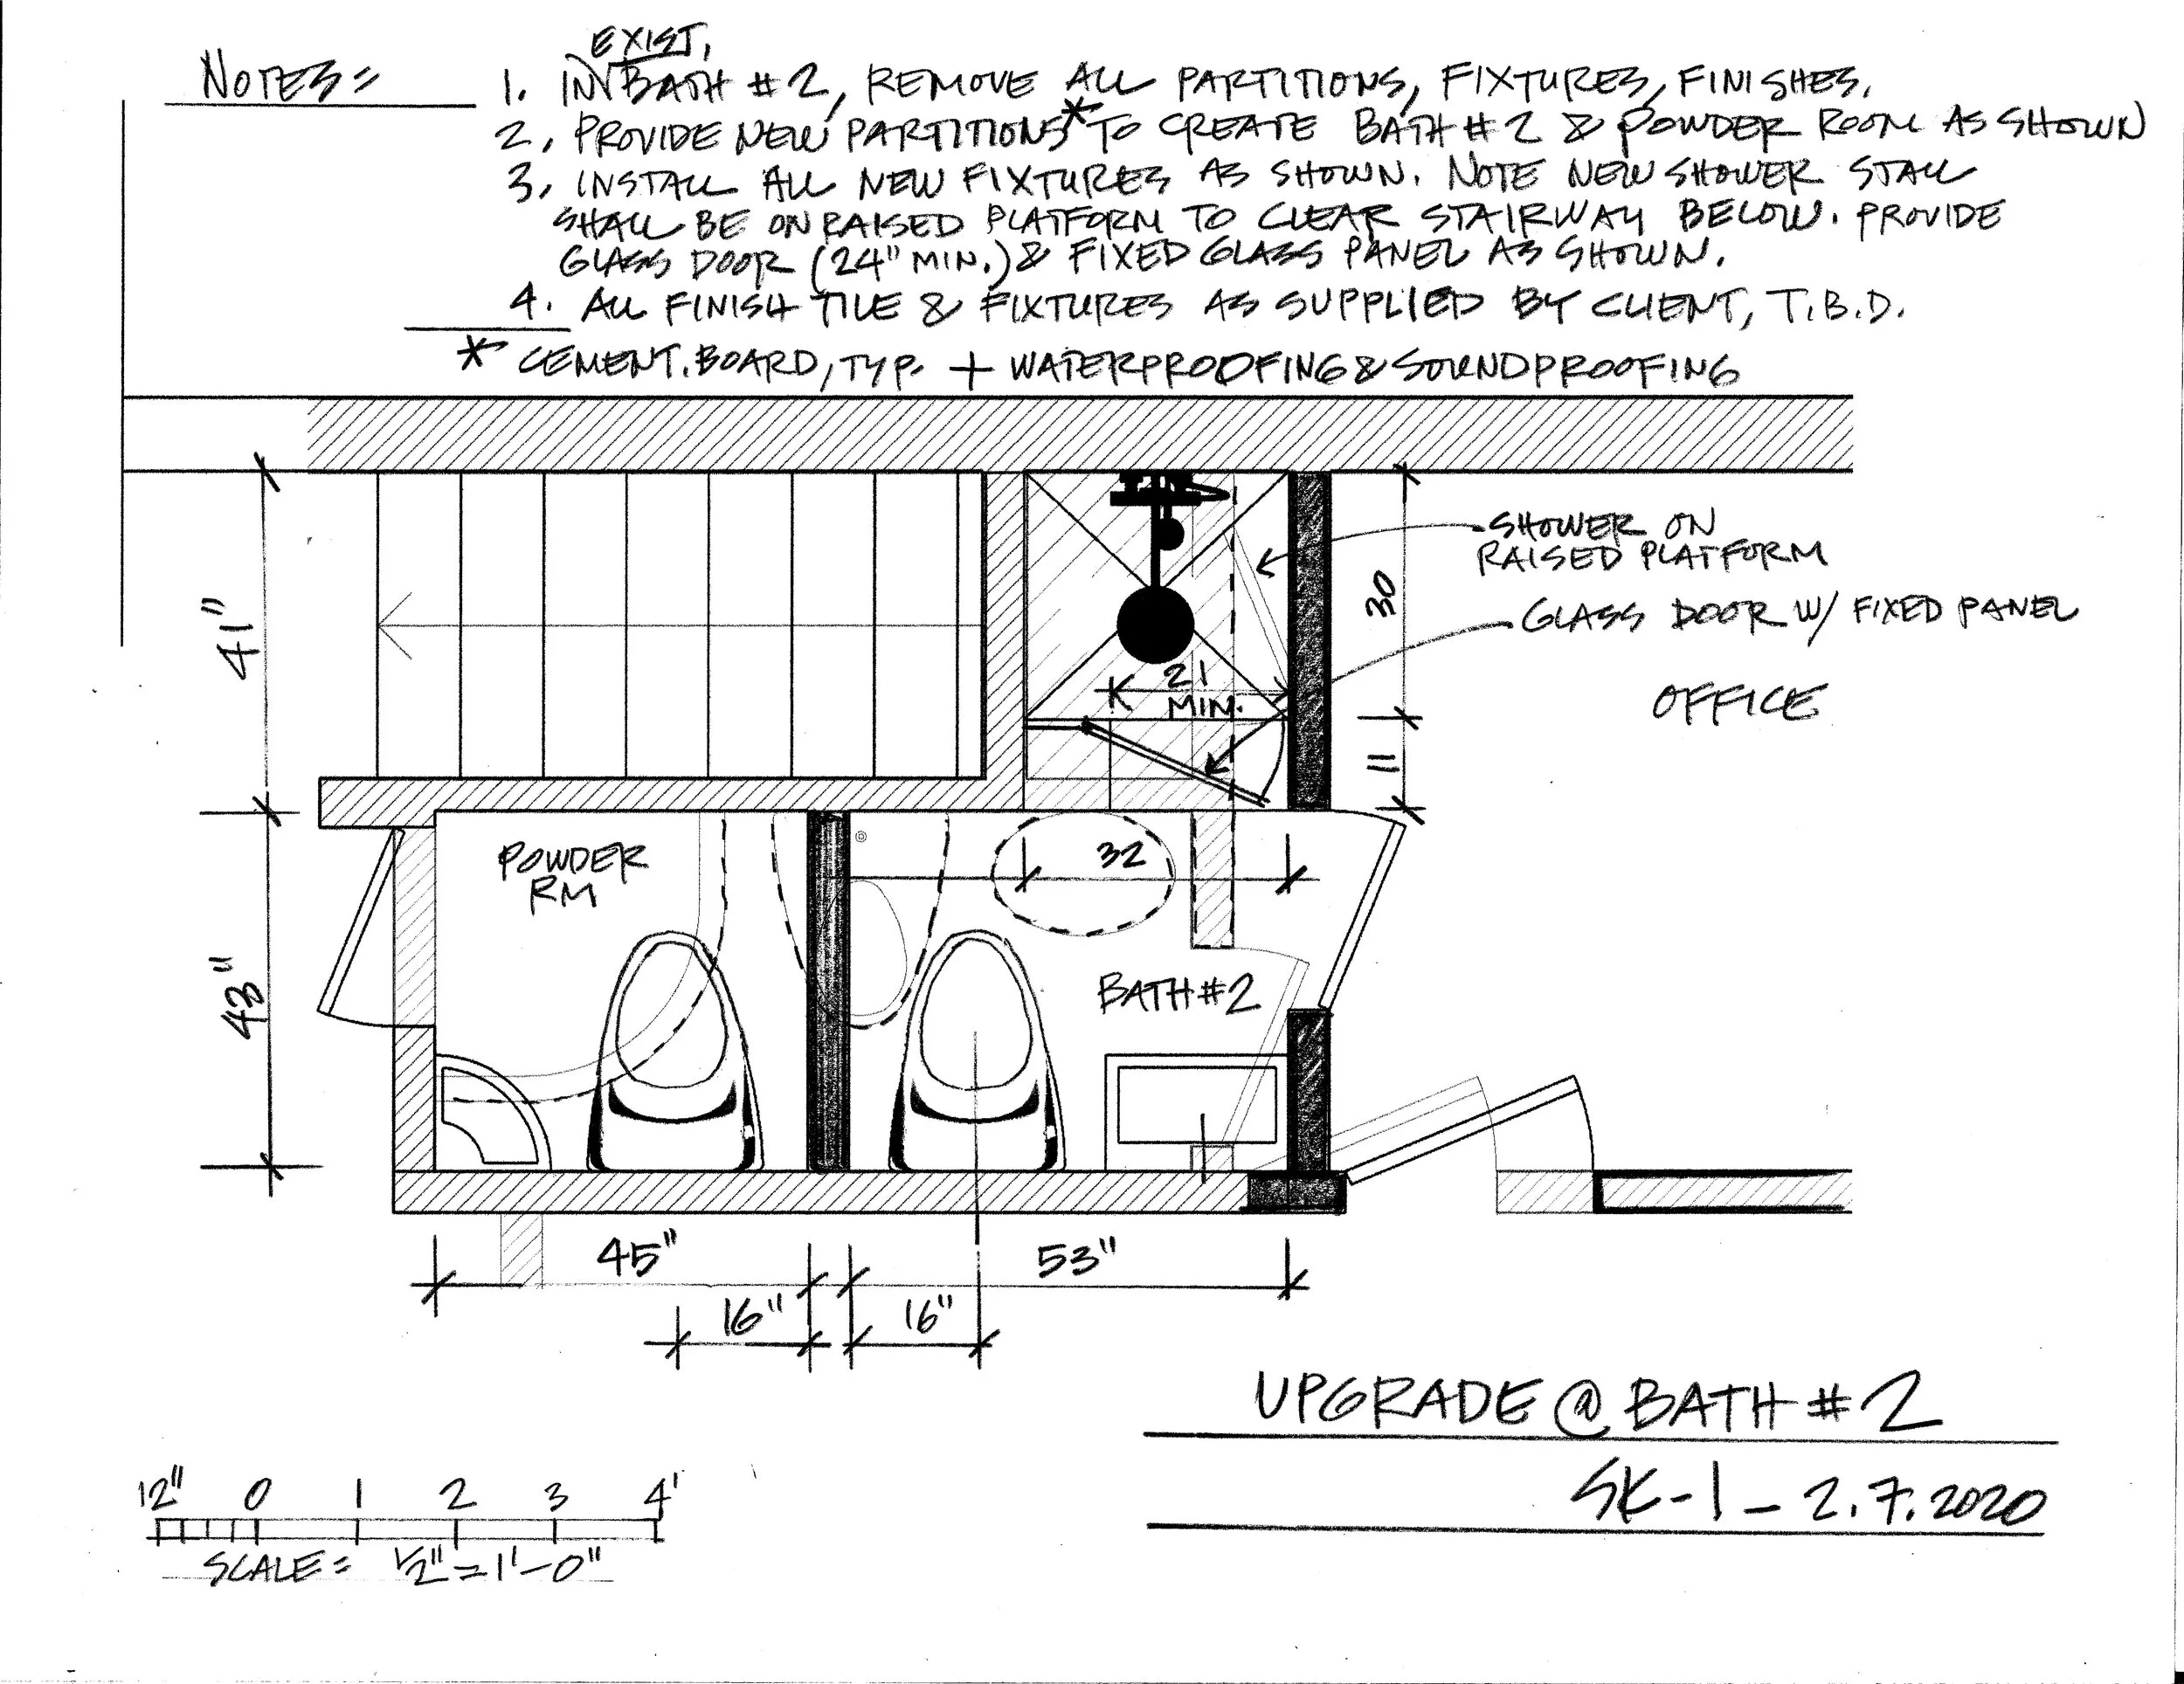 NOTES=
EXIST,
1. IN BATH #2, REMOVE ALL PARTITIONS, FIXTURES, FINISHES.
2, PROVIDE NEW PARTITIONS* TO CREATE BATH #2 & POWDER ROOM AS SHOWN
3, INSTALL ALL NEW FIXTURES AS SHOWN. NOTE NEW SHOWER STALL
SHALL BE ON RAISED PLATFORM TO CLEAR STAIRWAY BELOW. PROVIDE
GLASS DOOR (24" MIN.) & FIXED GLASS PANEL AS SHOWN.
4. ALL FINISH TILE & FIXTURES AS SUPPLIED BY CLIENT, T.B.D.
* CEMENT. BOARD, TYP. + WATERPROOFING & SOUNDPROOFING
41"
30
SHOWER ON
RAISED PLATFORM
GLASS DOOR W/ FIXED PANEL
21
MIN.
OFFICE
11
POWDER
RM
32
43"
BATH #2
45"
53"
16"
16"
UPGRADE @ BATH #2
SK-1 - 2.7.2020
12" 0 1 2 3 4'
SCALE = 1/2" = 1'-0"